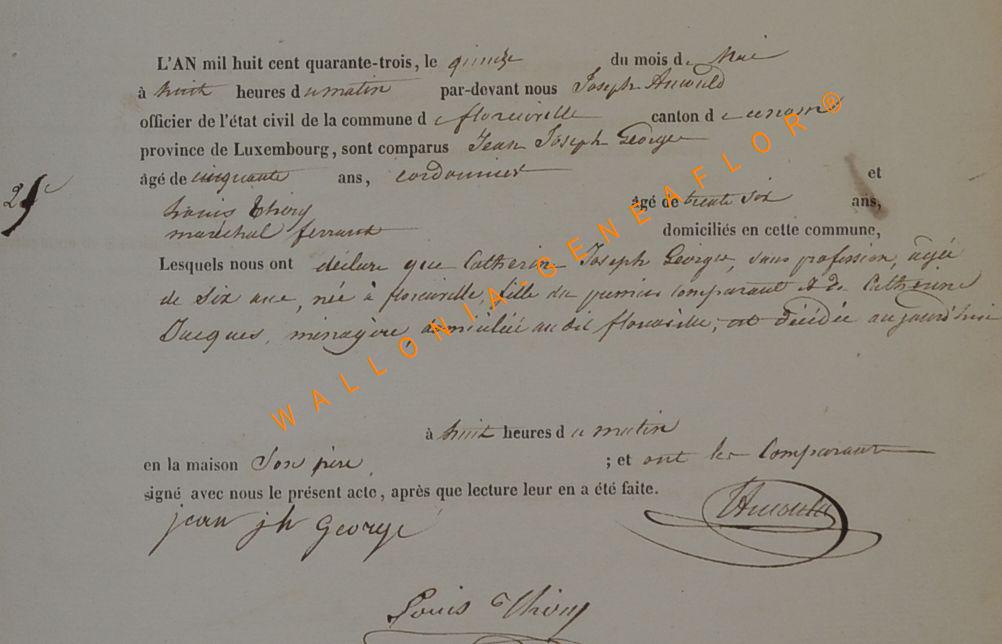 L'AN mil huit cent quarante-trois, le quinze du mois de Mai
à huit heures du matin par-devant nous Joseph
officier de l'état civil de la commune de florenville canton de
province de Luxembourg, sont comparus Jean Joseph George
âgé de cinquante ans, cordonnier et
Louis Thiry âgé de trente six ans,
maréchal ferrant domiciliés en cette commune,
Lesquels nous ont déclaré que Catherine Joseph George, sans profession, âgée
de six ans, née à florenville, fille du premier comparant et de Catherine
Jacques, ménagère, domiciliée au dit florenville, est décédée aujourd'hui
à huit heures du matin
en la maison son père ; et ont les comparants
signé avec nous le présent acte, après que lecture leur en a été faite.
jean jh George
Louis Thiry
WALLONIA-GENEAFLOR®